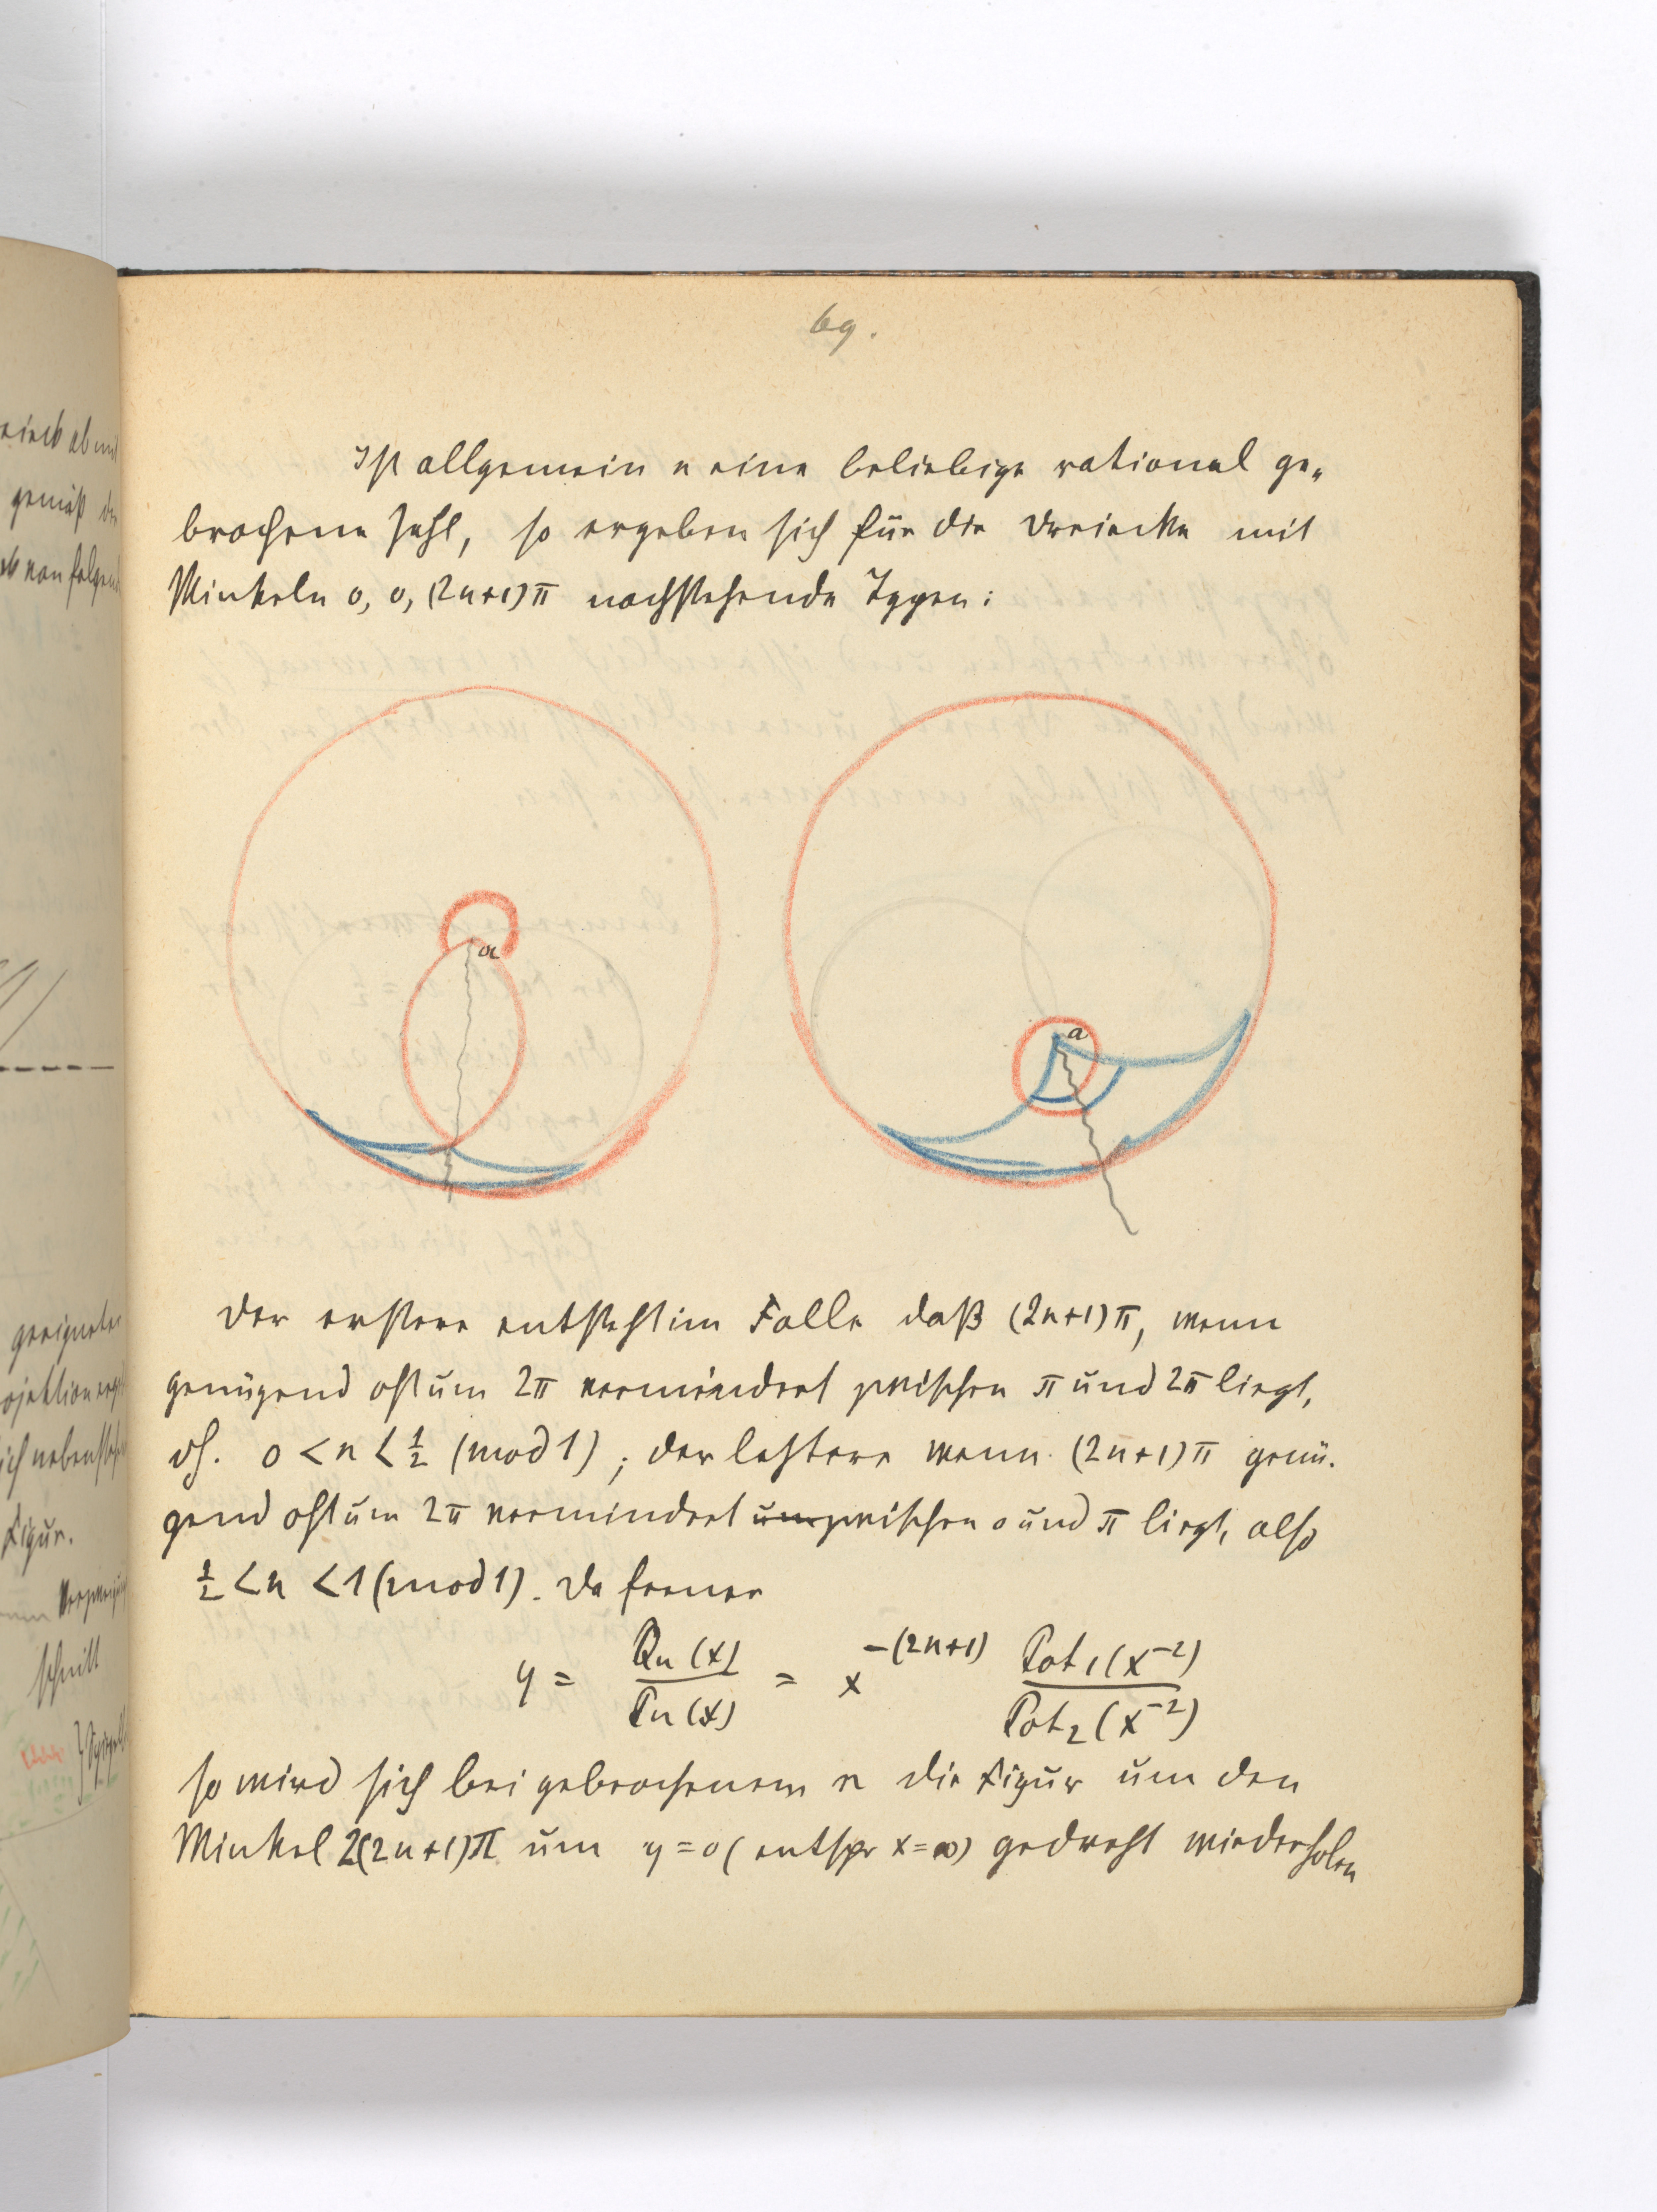 69.
Ist allgemein n eine beliebige rational ge-
brochene Zahl, so ergeben sich für die Dreiecke mit
Winkeln 0, 0, (2n+1)π nachstehende Typen:
a
a
Der erstere entsteht im Falle daß (2n+1)π, wenn
genügend oft um 2π vermindert zwischen π und 2π liegt,
dh. 0 < n < 1/2 (mod 1); der letztere wenn (2n+1)π genü-
gend oft um 2π vermindert zwischen 0 und π liegt, also
1/2 < n < 1 (mod 1). Da ferner
y = Qn(x)/Pn(x) = x^-(2n+1) Pot1(x^-2)/Pot2(x^-2)
so wird sich bei gebrochenem n die Figur um den
Winkel 2(2n+1)π um y=0 (entspr x=∞) gedreht wiederholen
gemäß
geeigneten
Figur.
schnitt